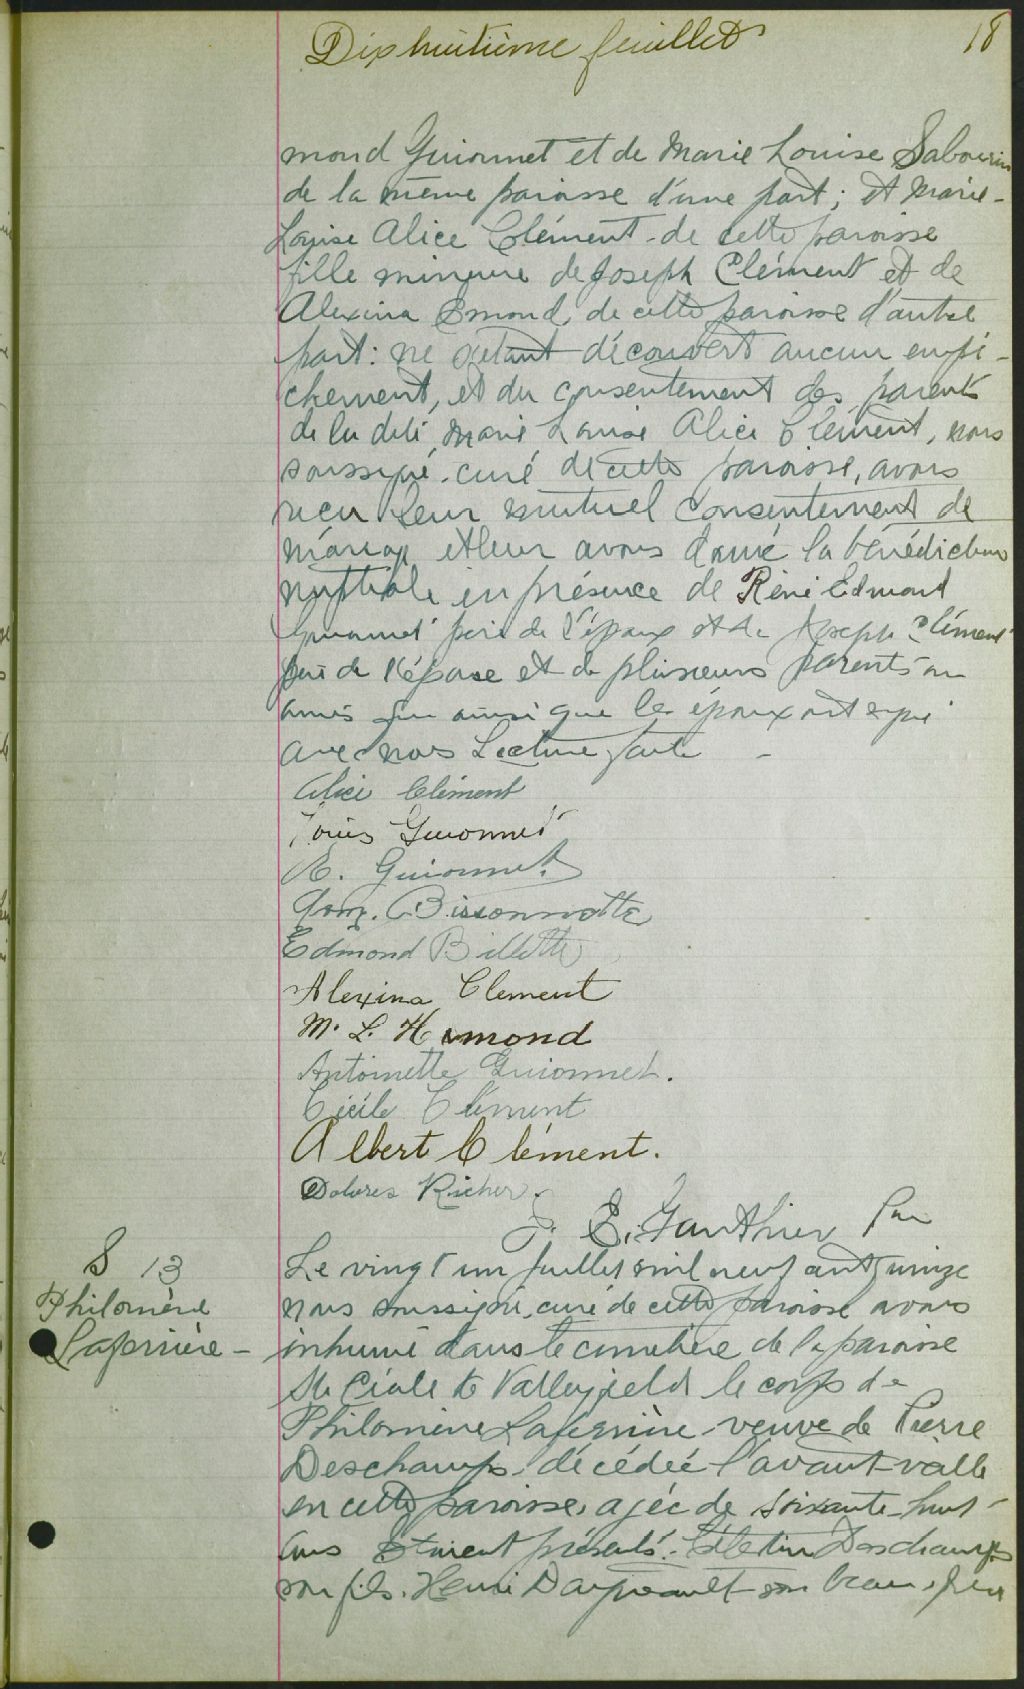 Dixhuitième feuillet
18
mond Guionnet et de Marie Louise Sabourin
de la même paroisse d'une part; et Marie-
Louise Alice Clément de cette paroisse
fille mineure de Joseph Clément et de
Alexina Emond de cette paroisse d'autre
part: ne s'étant découvert aucun empê-
chement, et du consentement des parents
de la dite Marie Louise Alice Clément, nous
soussigné, curé de cette paroisse, avons
reçu leur mutuel consentement de
mariage et leur avons donné la bénédiction
nuptiale en présence de Réné Edmond
Guionnet père de l'époux et de Joseph Clément
père de l'épouse et de plusieurs parents
amis ainsi que les époux ont signé
avec nous Lecture faite
Alice Clément
Louis Guionnet
E. Guionnet
Bissonnette
Edmond Billette
Alexina Clement
M. L. Hemond
Antoinette Guionnet.
Cécile Clément
Albert Clément.
Dolores Richer.
J. E. Gauthier Ptre
S 13
Philomène
Laferrière -
Le vingt un juillet mil neuf cent quinze
nous soussigné, curé de cette paroisse avons
inhumé dans le cimetière de la paroisse
Ste Cécile de Valleyfield le corps de
Philomène Laferrière veuve de Pierre
Deschamps, décédée l'avant-veille
en cette paroisse, agée de soixante-huit
ans Étaient présents: Célestin Deschamps
son fils. Henri Daigneault son beau-frère